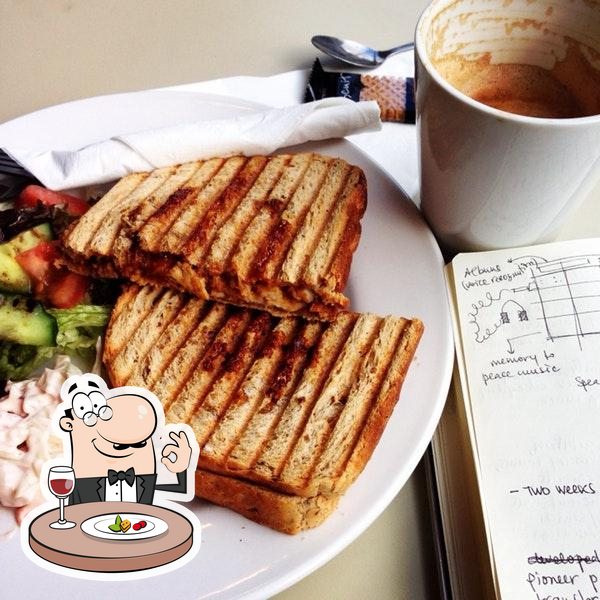 Albums
(voice recognition)
memory to
peace music
Spea
- Two weeks
developed
pioneer p